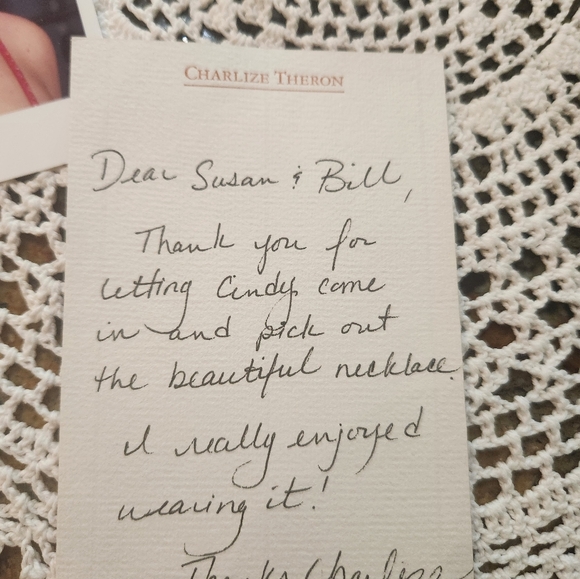 CHARLIZE THERON
Dear Susan & Bill,
Thank you for
letting Cindy come
in and pick out
the beautiful necklace.
I really enjoyed
wearing it!
Thanks Charlize